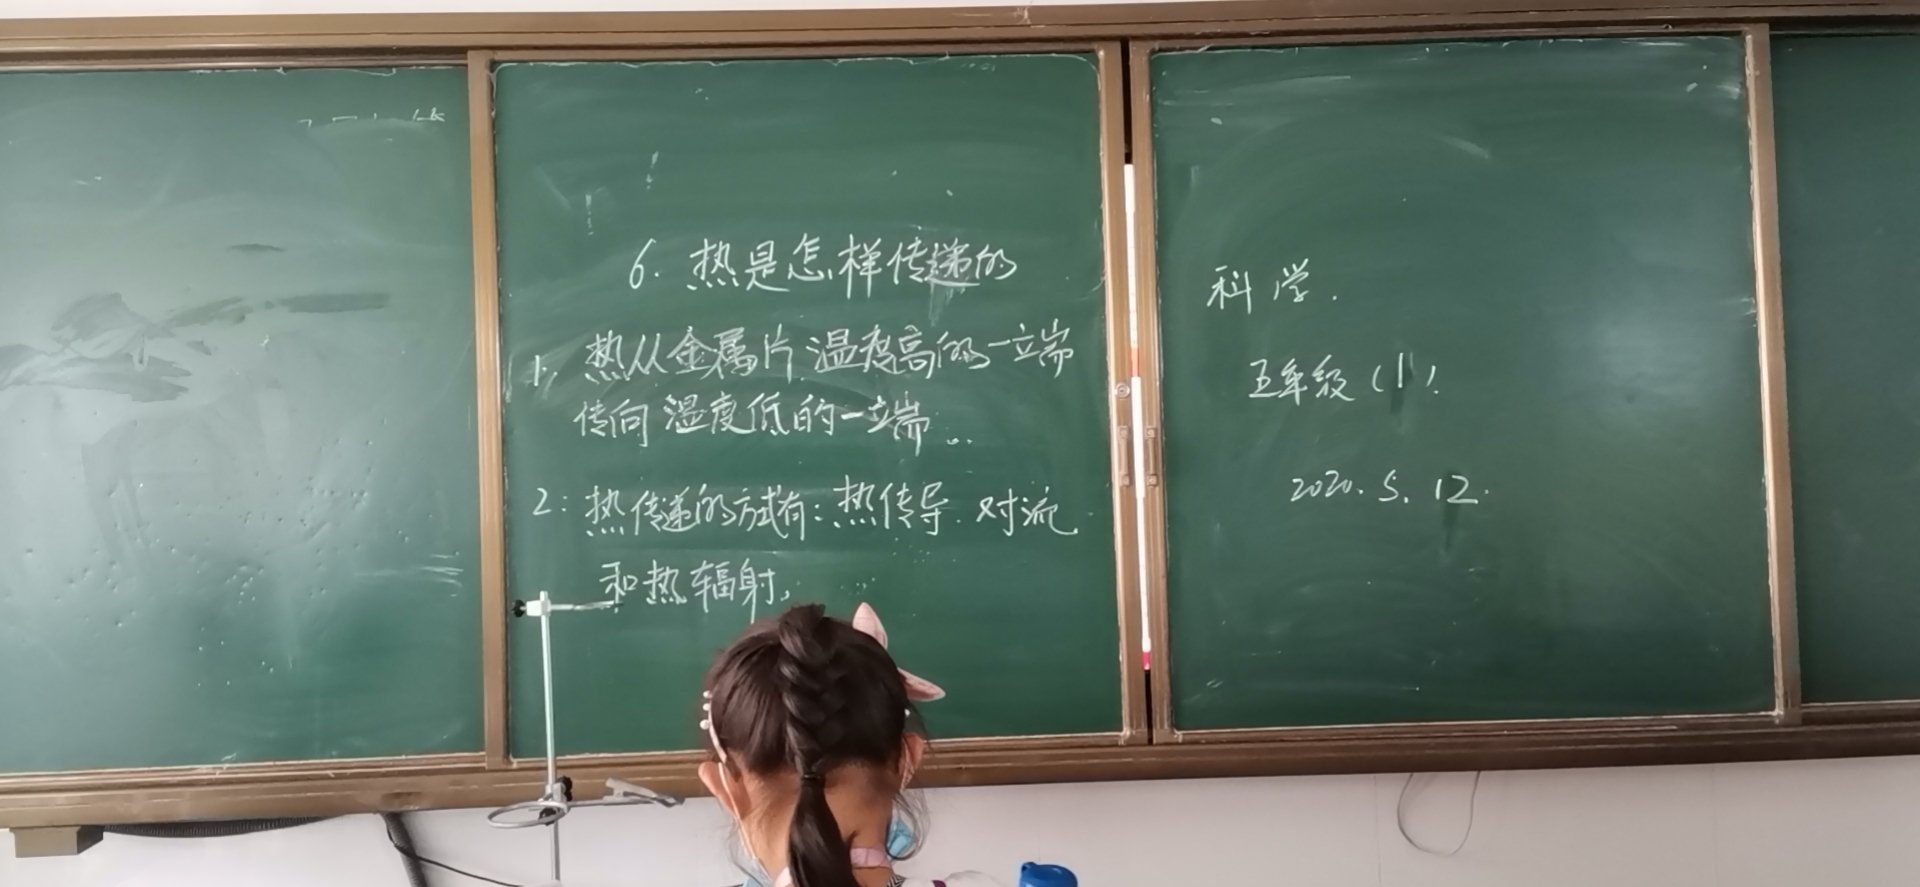 6. 热是怎样传递的
1. 热从金属片温度高的一端
传向温度低的一端.
2: 热传递的方式有: 热传导. 对流
和热辐射.
科学.
五年级(1)
2020. 5. 12.